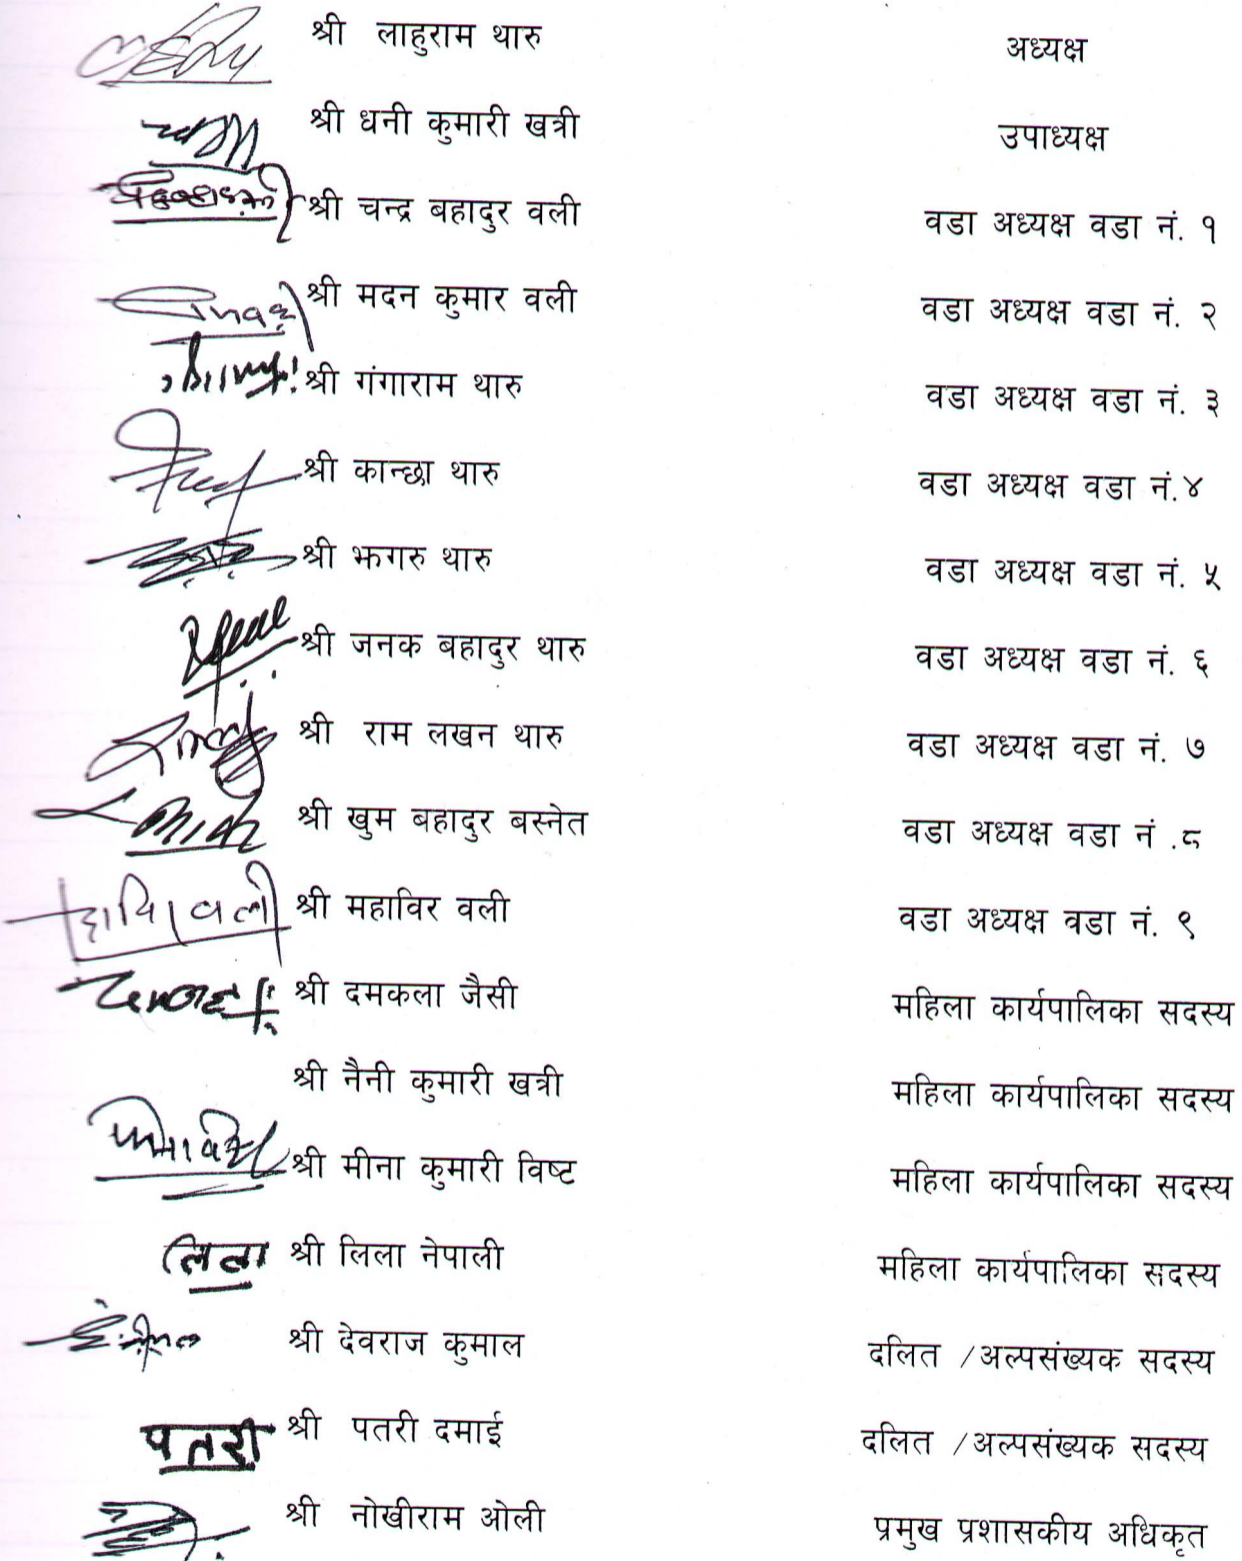 श्री लाहुराम थारु अध्यक्ष
श्री धनी कुमारी खत्री उपाध्यक्ष
श्री चन्द्र बहादुर वली वडा अध्यक्ष वडा नं. १
श्री मदन कुमार वली वडा अध्यक्ष वडा नं. २
श्री गंगाराम थारु वडा अध्यक्ष वडा नं. ३
श्री कान्छा थारु वडा अध्यक्ष वडा नं.४
श्री झगरु थारु वडा अध्यक्ष वडा नं. ५
श्री जनक बहादुर थारु वडा अध्यक्ष वडा नं. ६
श्री राम लखन थारु वडा अध्यक्ष वडा नं. ७
श्री खुम बहादुर बस्नेत वडा अध्यक्ष वडा नं .८
वली श्री महाविर वली वडा अध्यक्ष वडा नं. ९
श्री दमकला जैसी महिला कार्यपालिका सदस्य
श्री नैनी कुमारी खत्री महिला कार्यपालिका सदस्य
श्री मीना कुमारी विष्ट महिला कार्यपालिका सदस्य
लिला श्री लिला नेपाली महिला कार्यपालिका सदस्य
श्री देवराज कुमाल दलित /अल्पसंख्यक सदस्य
पतरी श्री पतरी दमाई दलित /अल्पसंख्यक सदस्य
श्री नोखीराम ओली प्रमुख प्रशासकीय अधिकृत